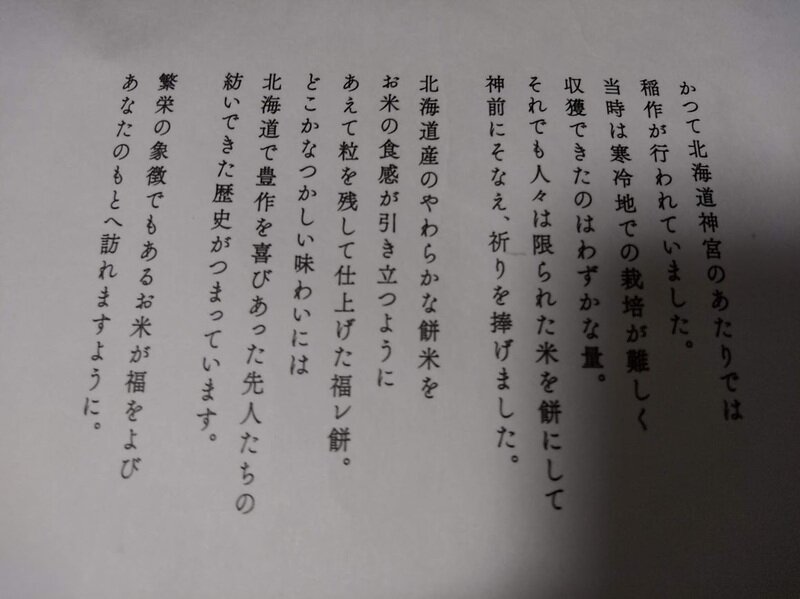 かつて北海道神宮のあたりでは
稲作が行われていました。
当時は寒冷地での栽培が難しく
収獲できたのはわずかな量。
それでも人々は限られた米を餅にして
神前にそなえ、祈りを捧げました。
北海道産のやわらかな餅米を
お米の食感が引き立つように
あえて粒を残して仕上げた福レ餅。
どこかなつかしい味わいには
北海道で豊作を喜びあった先人たちの
紡いできた歴史がつまっています。
繁栄の象徴でもあるお米が福をよび
あなたのもとへ訪れますように。